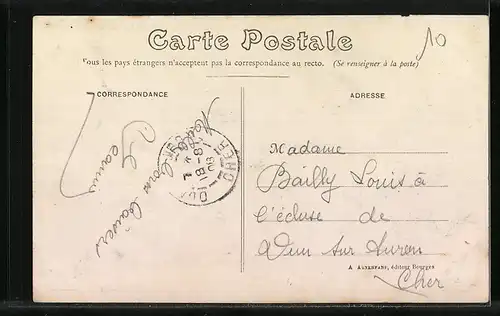 Carte Postale
10
Tous les pays étrangers n'acceptent pas la correspondance au recto. (Se renseigner à la poste)
CORRESPONDANCE
ADRESSE
Madame
Bailly Louis à
l'écluse de
Dun sur Auron
A. AUXENFANS, éditeur Bourges
Cher
baisers